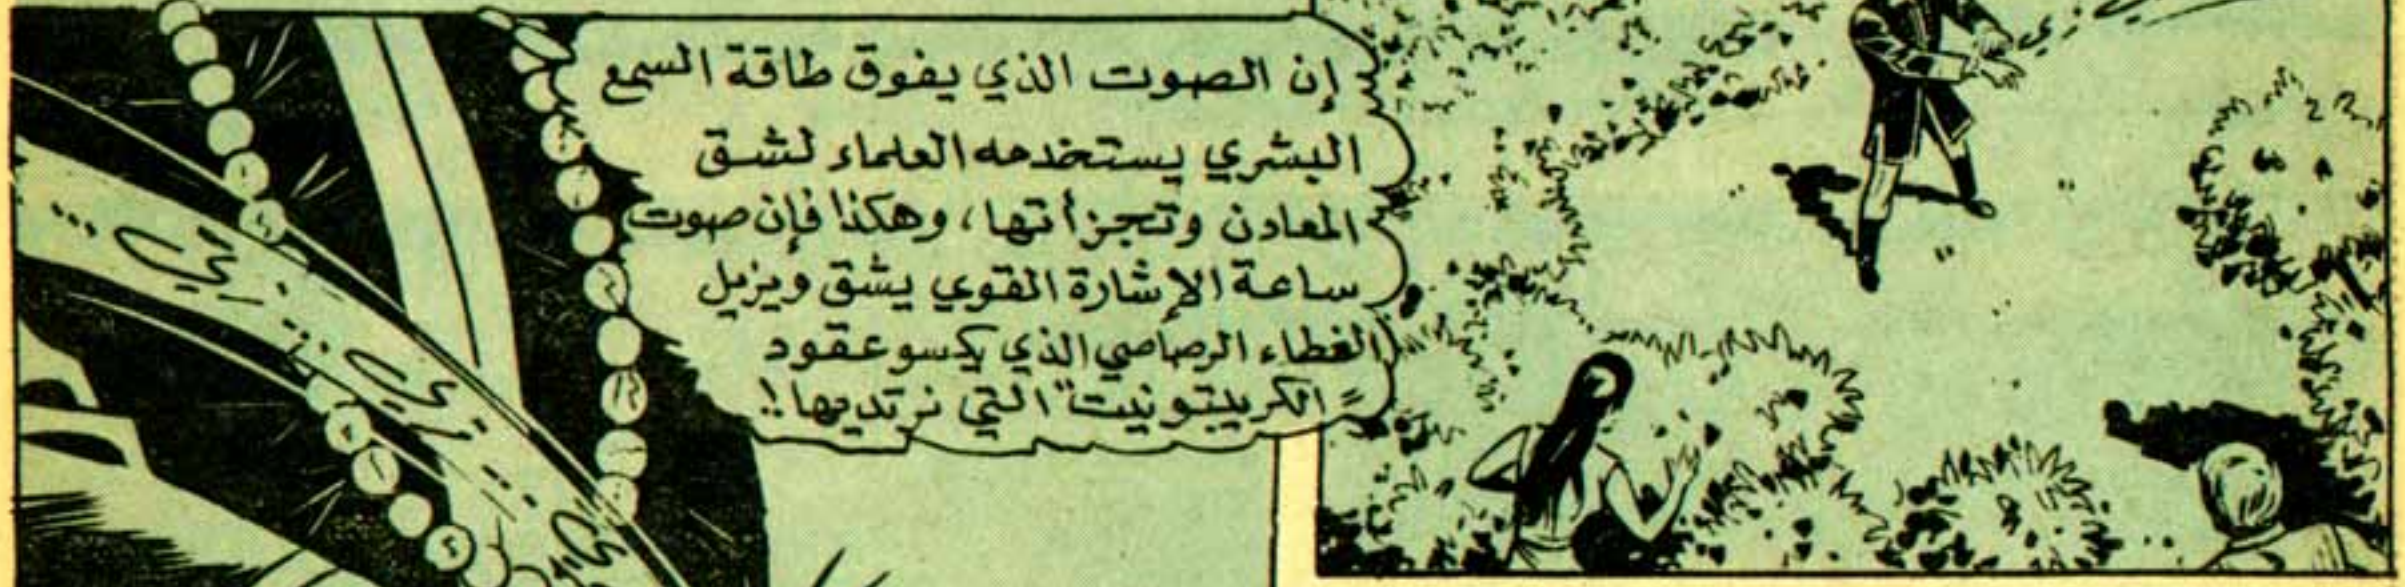 إن الصوت الذي يفوق طاقة السمع
البشري يستخدمه العلماء لشق
المعادن وتجزأتها، وهكذا فإن صوت
ساعة الإشارة القوي يشق ويزيل
الغطاء الرصاصي الذي يكسو عقود
"الكريبتونيت" التي نرتديها!!
... زي .. زي ..